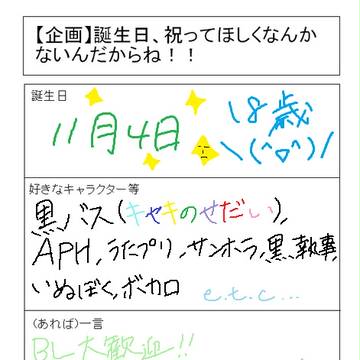 【企画】誕生日、祝ってほしくなんか
ないんだからね！！
誕生日
11月4日
18歳
\(^o^)/
好きなキャラクター等
黒バス(キセキのせだい),
APH,うたプリ,サンホラ,黒執事,
いぬぼく,ボカロ
e.t.c...
(あれば)一言
BL大歓迎!!